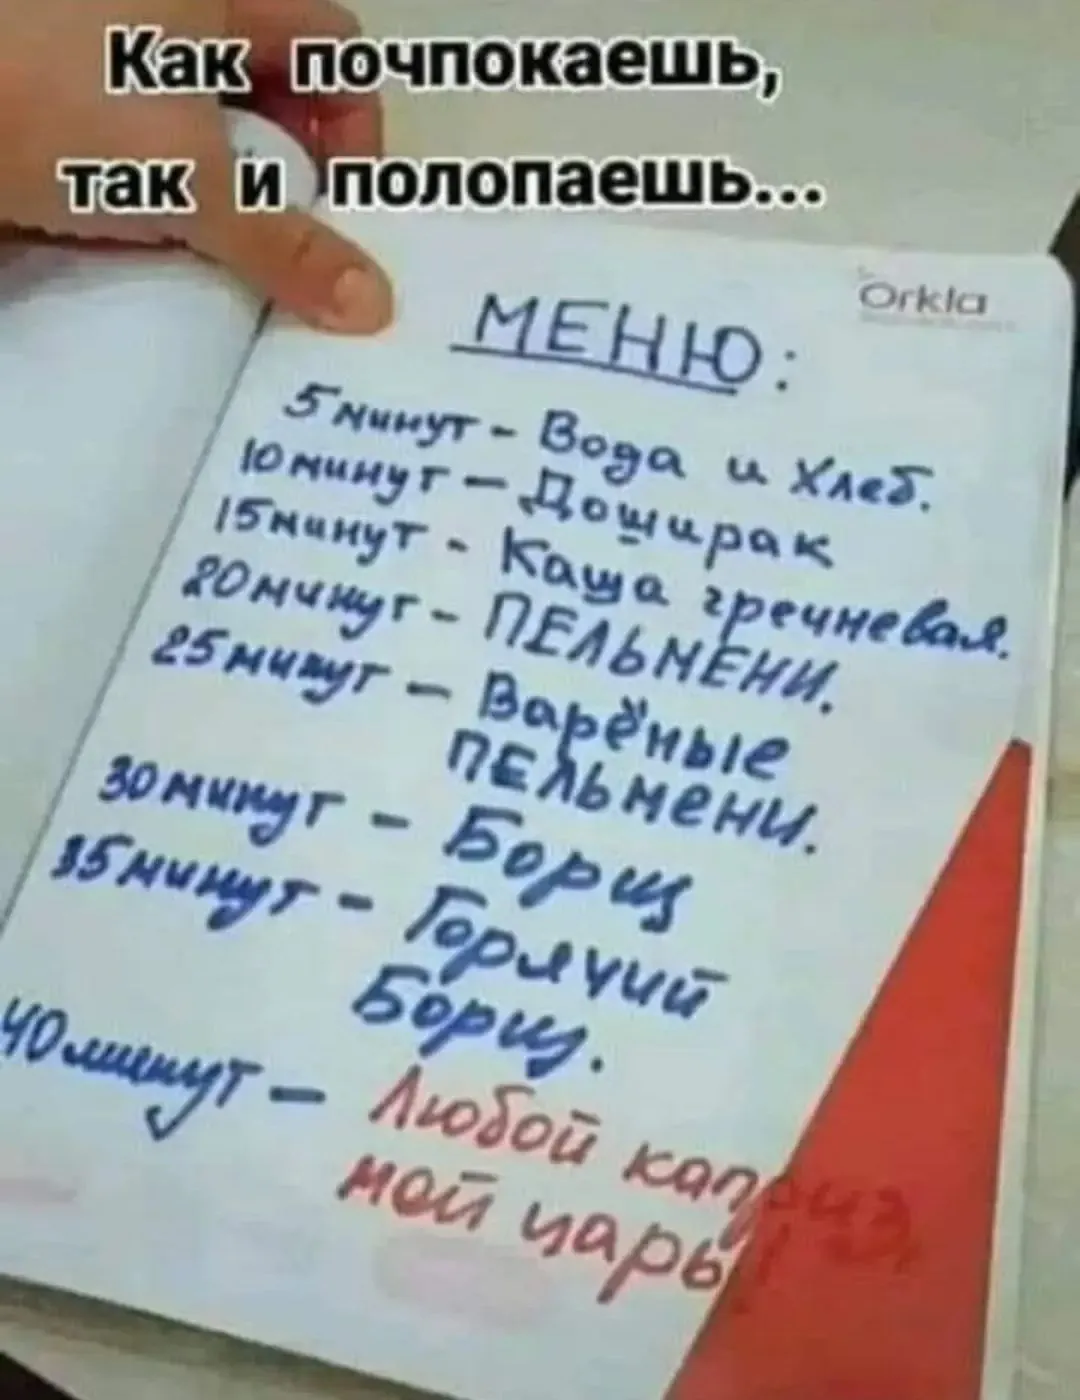 Как почпокаешь,
так и полопаешь...
Orkla
МЕНЮ:
5 минут - Вода и Хлеб.
10 минут - Доширак
15 минут - Каша гречневая.
20 минут - ПЕЛЬМЕНИ.
25 минут - Варёные
ПЕЛЬМЕНИ.
30 минут - Борщ
35 минут - Горячий
Борщ.
40 минут - Любой каприз,
мой царь!